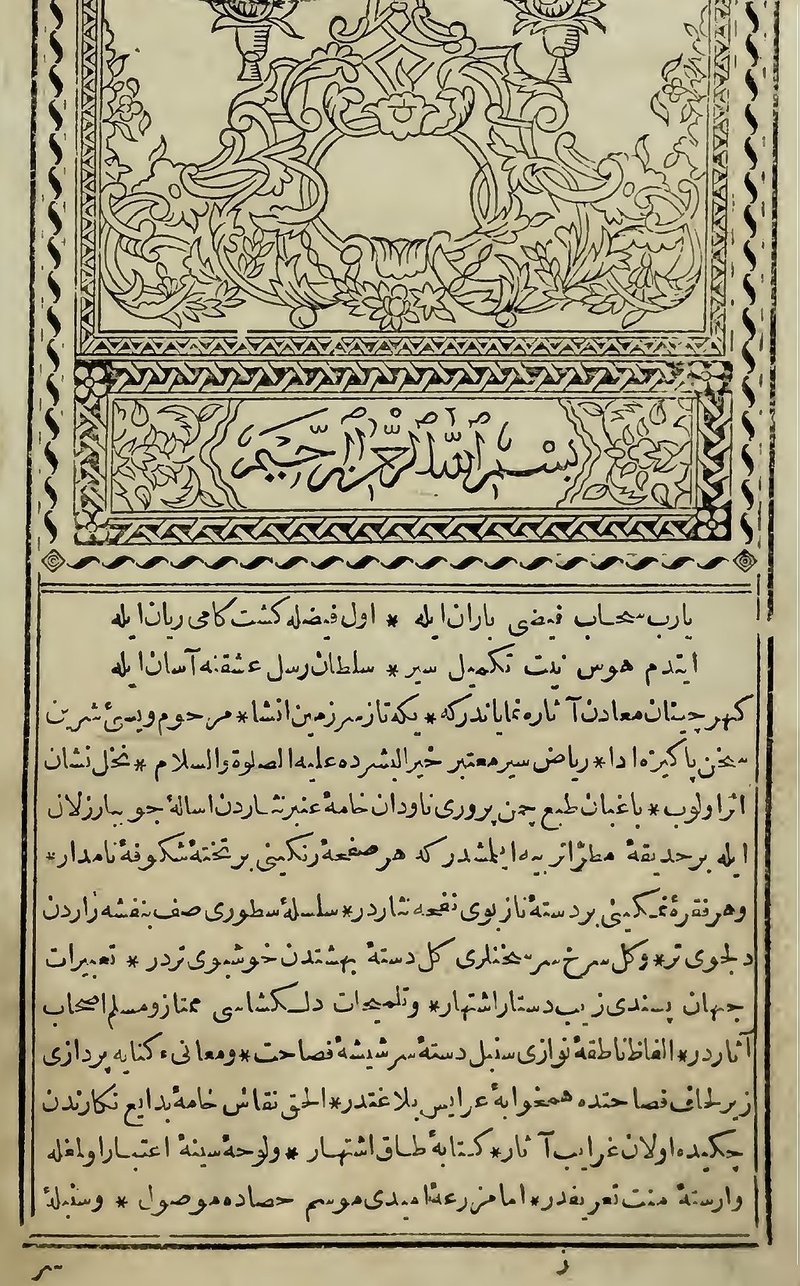 بسم الله الرحمن الرحيم
يارب سحاب فيضى باران ايله * اول فيضله كشت كامى ريان ايله
ايتدم هوس نيت تكميل سير * سلطان رسل عشقنه آسان ايله
كهرچينان معادن آثاره نماياندركه * يكه تاز سرزمين انشا * مرحوم ويسئ شيرين
سخن پاكيزه ادا * رياض سير معتبر خير البشرده عليه الصلوة والسلام * نخل نشان
اثر اولوب * باغبان طبع چمن پرورى ناودان خامۀ عنبر نثاردن اسالۀ جويبار زلال
ايله بر حديقۀ مطرا تربيه ايلمشدر كه هر صفحۀ رنكينى بر تختۀ شكوفۀ نامدار *
وهر فقرۀ نمكينى بر دستۀ نازبوى نفحه نثاردر * سلسلۀ سطورى صف بنفشه زاردن
دلجوى تر * وكل سرخ سر سخنلرى كل دستۀ بهشتدن خوشبوى تردر * تعبيرات
جهان پسندى زيب دستار اشتهار * وتلميحات دلكشاسى ممتاز ومسلم اصحاب
آثاردر * الفاظ ناطقه نوازى سنبل دستۀ سر شيشۀ فصاحت * ومعانئ كنايه پردازى
زير لحاف فصاحتده همخوابۀ عرايس بلاغتدر * الحق نقاش خامۀ بدايع نكارندن
چكيده اولان غرايب آثار * كتابۀ طاق اشتهار * ولوحۀ سينۀ اعتبار اولمغله
وارستۀ منت تعريفدر * اما مزرعۀ اميدى موسم حصاده موصول * وسنبلۀ
ز